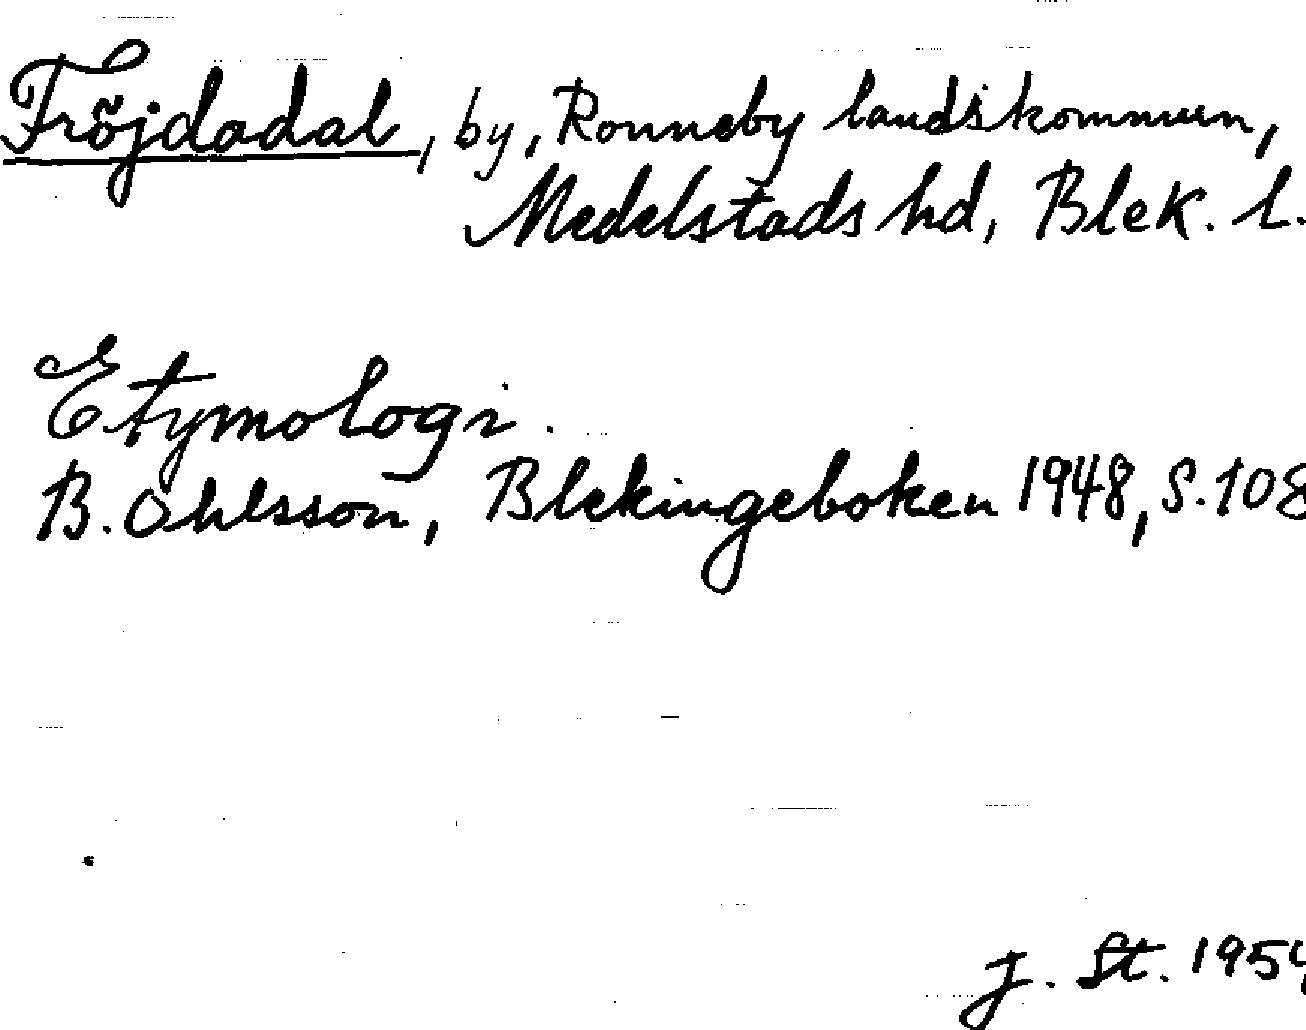 Fröjdadal, by, Ronneby landskommun,
Medelstads hd, Blek. l.
Etymologi.
B. Ohlsson, Blekingeboken 1948, S. 108
J. St. 1954